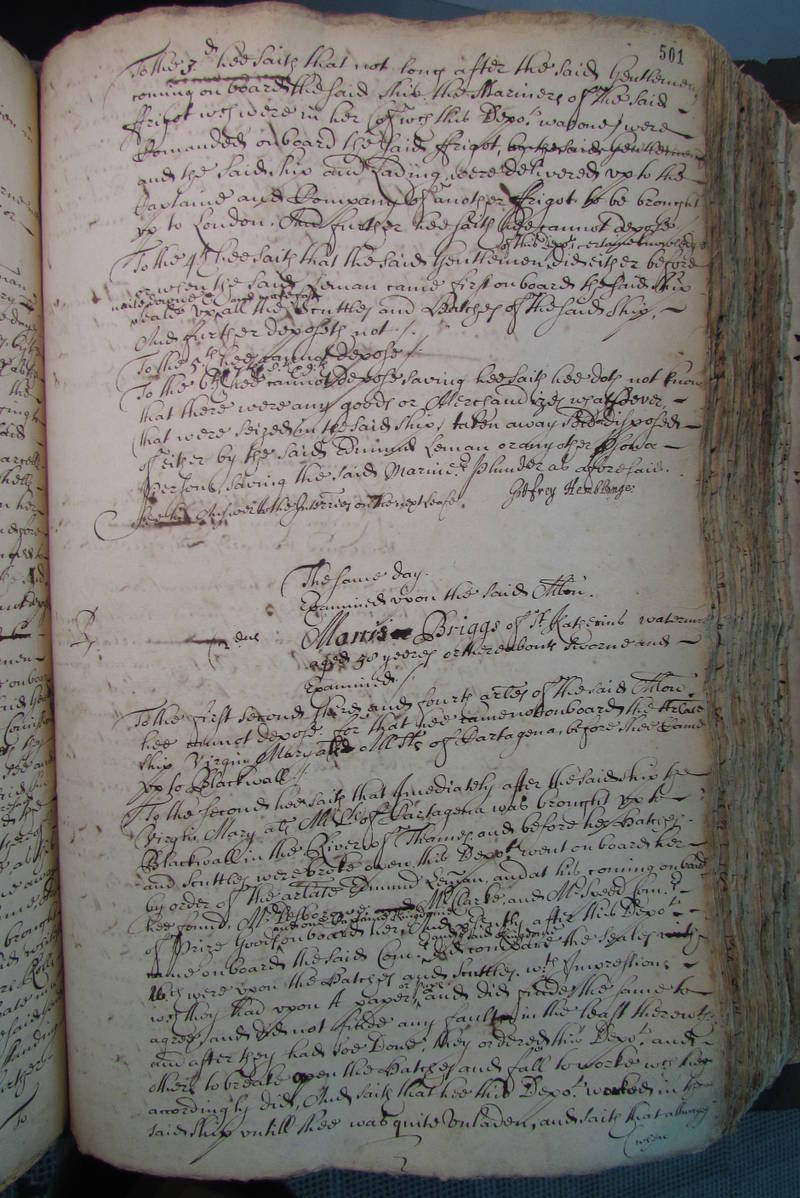 501
To the 3d hee saith that not long after the said Gentlemen
coming on board the said ship the Mariners of the said
ffrigot wch were in her (of wch this Depot was one) were
Comanded on board the said ffrigot, by the said gentlemen
and the said ship and lading were delivered vp to the
Captaine and Company of another ffrigot to be brought
vp to London. And further hee saith hee cannot depose
of this Depts certaine knowledge
To the 4th hee saith that the said Gentlemen did either before
or when the said Leman came first on board the said ship
naile downe and make fast
seale vp all the Scuttles and Hatches of the said ship,
And further deposeth not /.
To the 5th hee cannot depose /.
To the 6th hee cannot depose saving hee saith hee doth not know
that there were any goods or Merchandizes whatsoever
that were seized in the said ship, taken away or disposed
of either by the said Edmund Leman or any other
persons, saving the said Mariners plunder as aforesaid.
Answer to the Interries on the next leafe.
The same day.
Examined vpon the said Allon.
Briggs of St Katherins waterman
aged 50 yeeres or thereabouts sworne and
Examined /
To the first second third and fourth artles of the said Allon
hee cannot depose for that hee came not on board the Arlate
ship Virgin Mary als of Cartagena, before shee came
vp to Blackwall /.
To the second hee saith that Immediately after the said ship the
Virgin Mary als of Cartagena was brought vp to
Blackwall in the River of Thames and before her Hatches
and scuttles were broke open this Depot went on board her
by order of the artlate Edmund Leman, and at his coming on board
hee found Mr Desborow Mr Clarke, and Mr Sneed Comrs
of Prize Goods on board her, And saith, after this Depot
came on board the said Comrs did compare the seales
wch were vpon the Hatches and scuttles wth Impressions
wch they had vpon a paper, and did finde the same to
agree and did not finde any fault in the least therewth
and after they had soe Done, they ordered this Depot and
others to breake open the Hatches and fall to worke wch hee
accordingly did, And saith that hee this Depot worked in the
said ship vntill shee was quite vnladen, and saith that allwayes
when